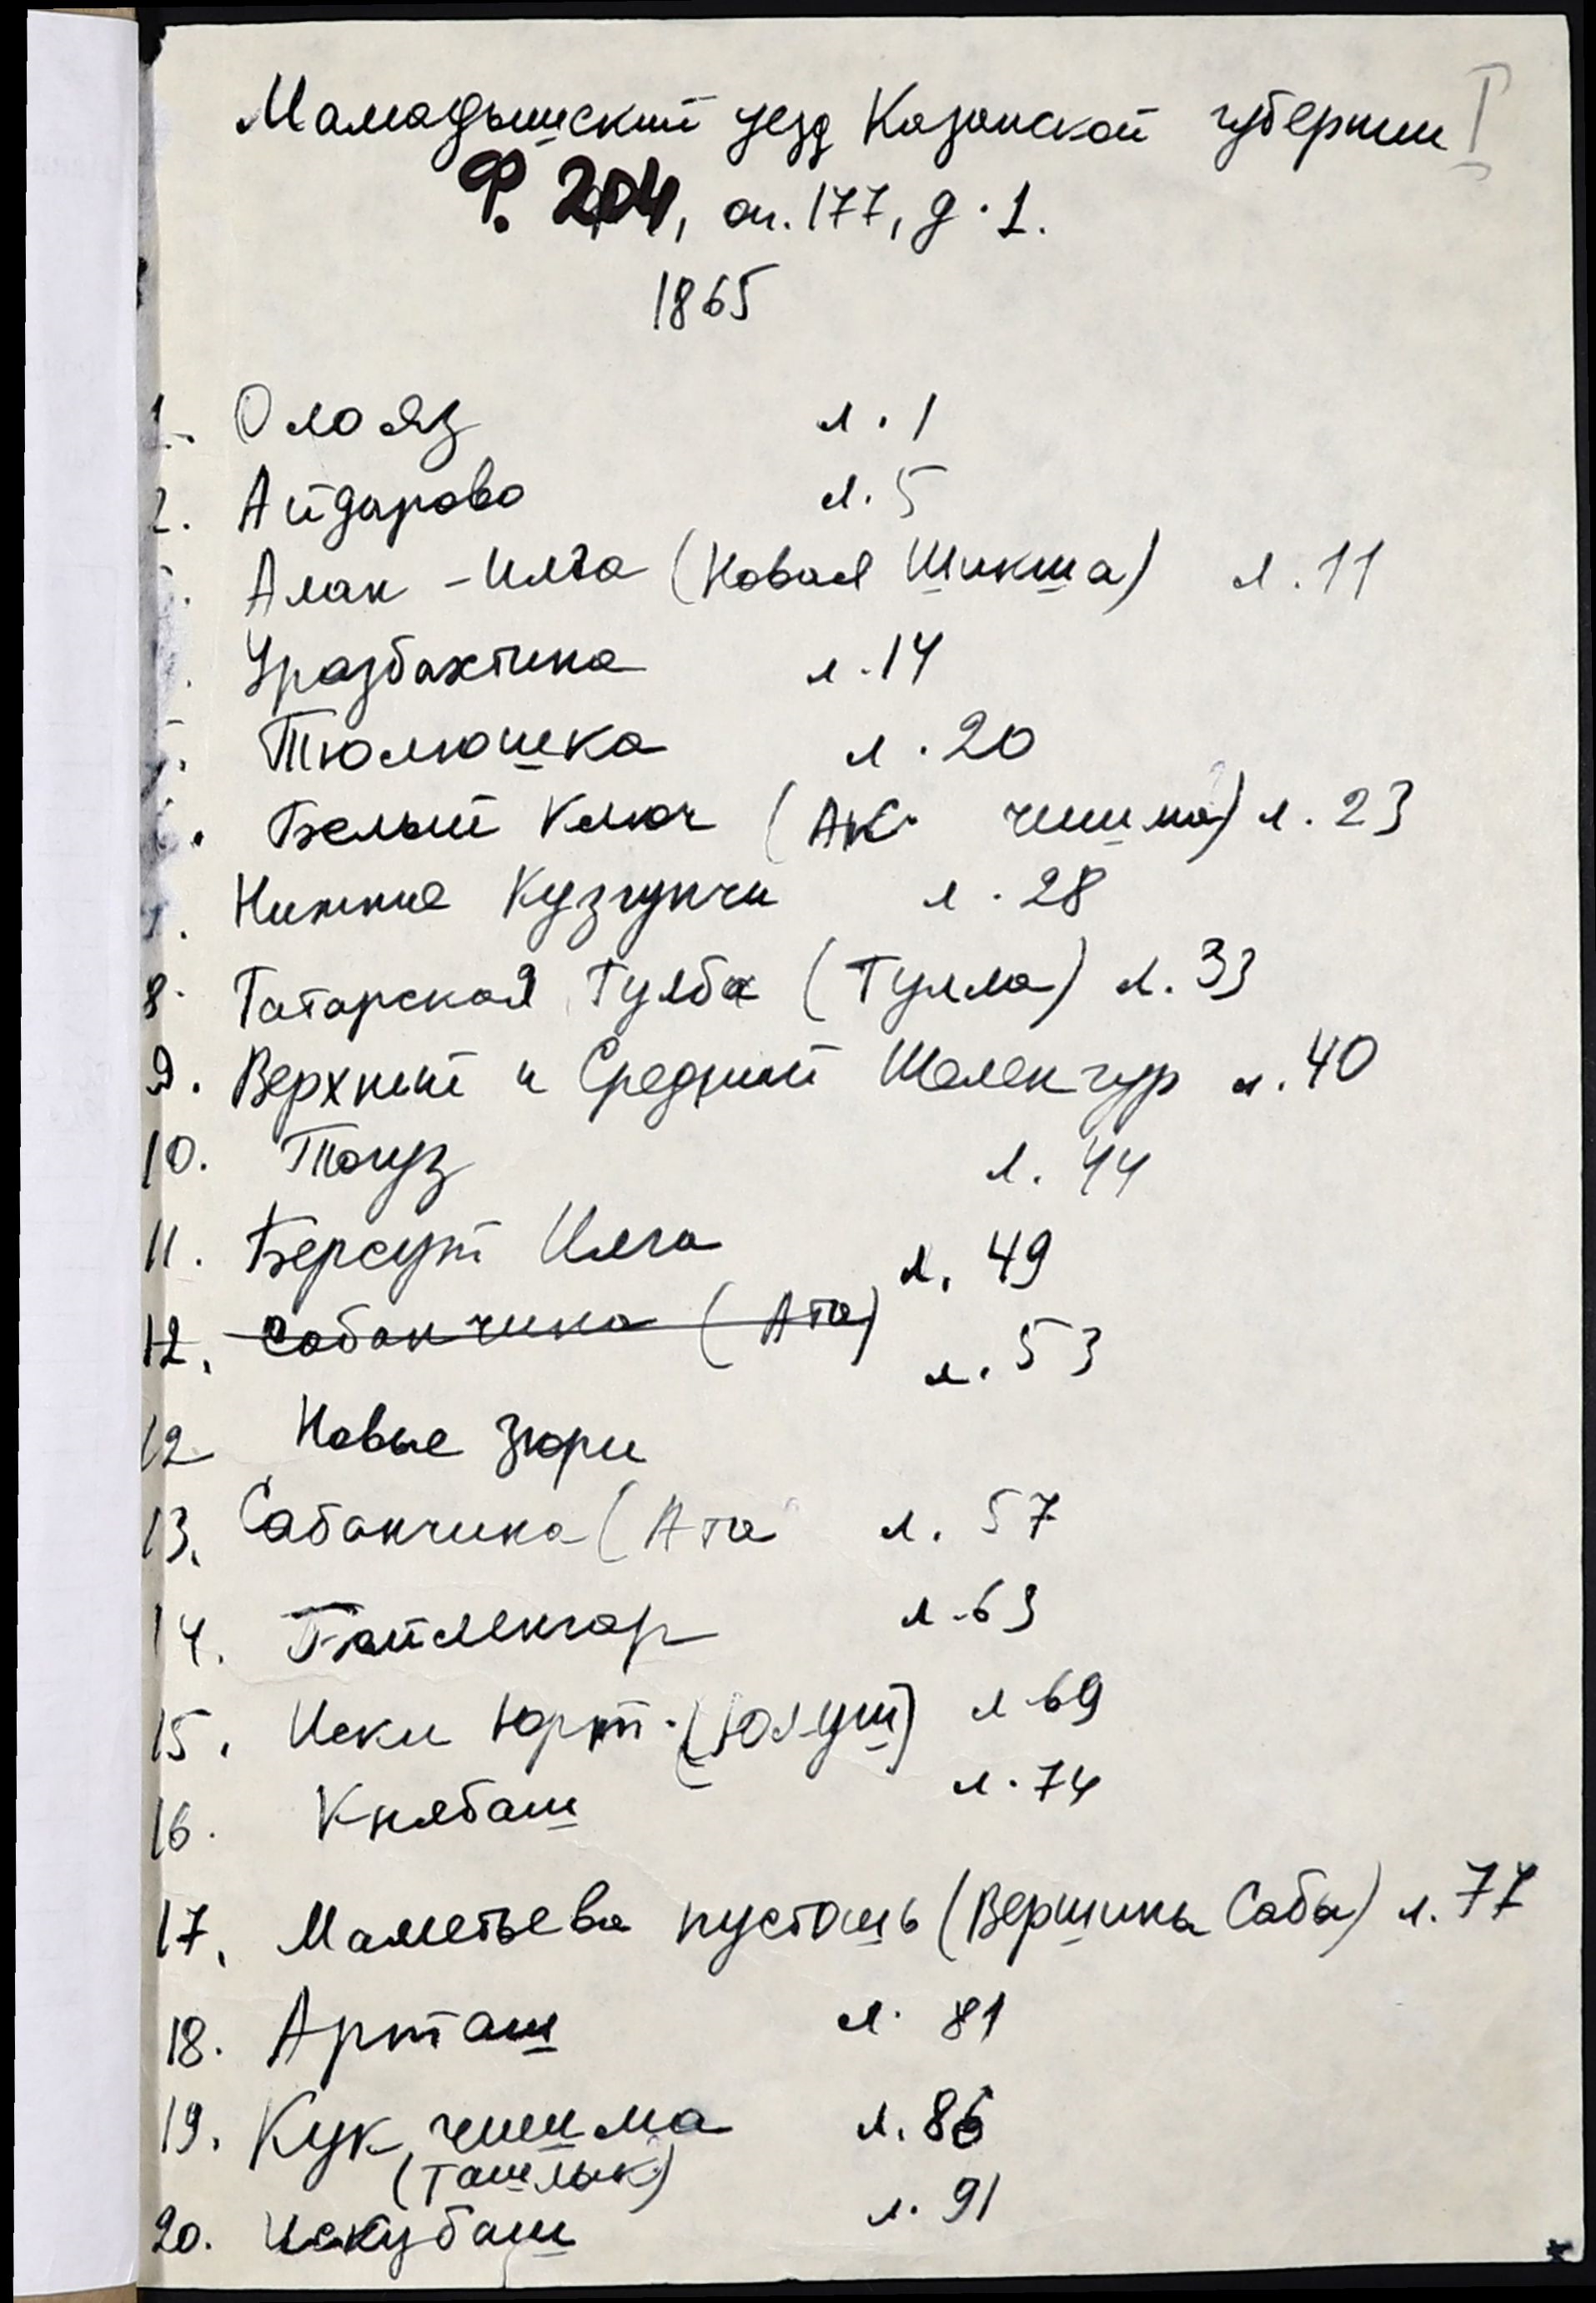 Мамадышский уезд Казанской губернии I
Ф. 204, оп. 177, д. 1.
1865
1. Олояз л. 1
2. Айдарово л. 5
Алан - Илга (Новая Шикша) л. 11
Уразбахтина л. 14
Тюлюшка л. 20
Белый Ключ (Ак чишма) л. 23
Нижние Кузгунчи л. 28
8. Татарская Тулба (Тулма) л. 33
9. Верхний и Средний Шеленгур л. 40
10. Тогуз л. 44
11. Берсут Илга л. 49
12. Сабанчина (Ата) л. 53
12 Новые Зюри
13. Сабанчина (Ата л. 57
14. Байлянгар л. 63
15. Иски Юрт (Юлуш) л 69
16. Княбаш л. 74
17. Маметьева пустошь (Вершина Сабы) л. 77
18. Арташ л. 81
19. Кук чишма л. 86
(Ташлык)
20. Искубаш л. 91